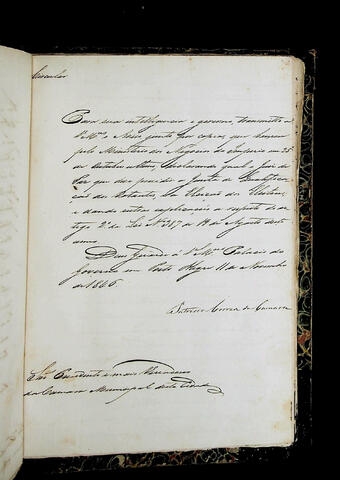 Circular
Para sua intelligencia e governo, transmitto a
V.Mces a
pelo Ministerio dos Negocios do Imperio em 25
de Outubro ultimo, declarando qual o Juiz de
Paz que deve presidir a Junta de Qualifica-
cão dos Votantes, e a Eleicão de Eleitores,
e dando outras explicações a respeito do ar-
tigo 2º da Lei Nº 387 de 19 de Agosto deste
anno.
Deos Guarde a V.Mces Palacio do
Governo em Porto Alegre 11 de Novembro
de 1846
Patricio Correa da Camara
Snrs Presidente e mais Vereadores
da Camara Municipal desta Cidade